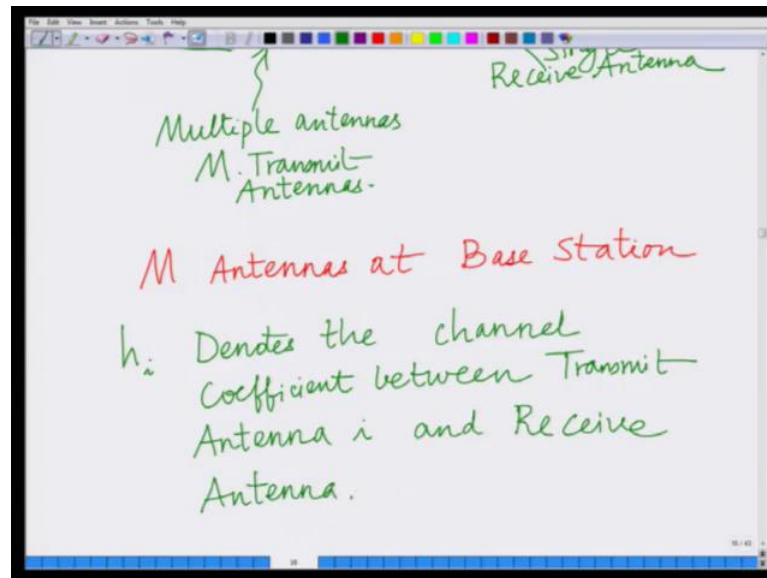 File Edit View Insert Actions Tools Help
Single
Receive Antenna
Multiple antennas
M. Transmit
Antennas.
M Antennas at Base Station
hi Denotes the channel
Coefficient between Transmit
Antenna i and Receive
Antenna.